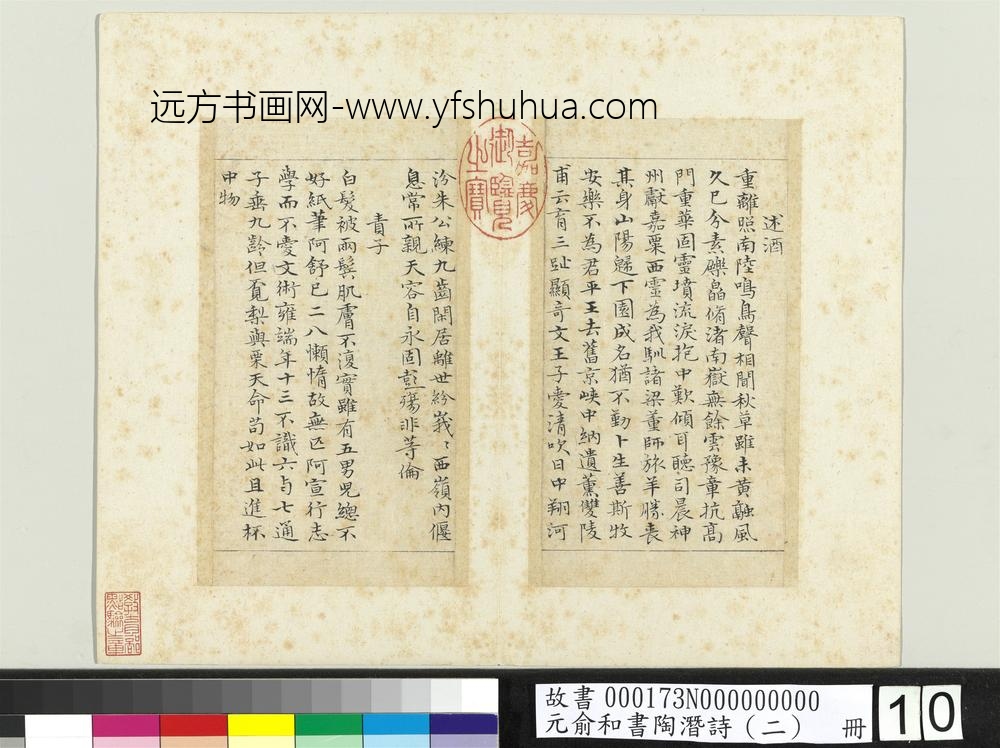 远方书画网-www.yfshuhua.com
嘉慶
御覽
之寶
述酒
重離照南陸鳴鳥聲相聞秋草雖未黃融風
久已分素礫皛脩渚南嶽無餘雲豫章抗高
門重華固靈墳流淚抱中歎傾耳聽司晨神
州獻嘉粟西靈為我馴諸梁董師旅羊勝喪
其身山陽歸下國成名猶不勤卜生善斯牧
安樂不為君平王去舊京峽中納遺薰雙陵
甫云育三趾顯奇文王子愛清吹日中翔河
汾朱公練九齒閑居離世紛峩〻西嶺內偃
息常所親天容自永固彭殤非等倫
責子
白髮被兩鬢肌膚不復實雖有五男兒總不
好紙筆阿舒已二八懶惰故無匹阿宣行志
學而不愛文術雍端年十三不識六与七通
子垂九齡但覓梨與栗天命苟如此且進杯
中物
故書 000173N000000000
元俞和書陶潛詩（二） 冊
10